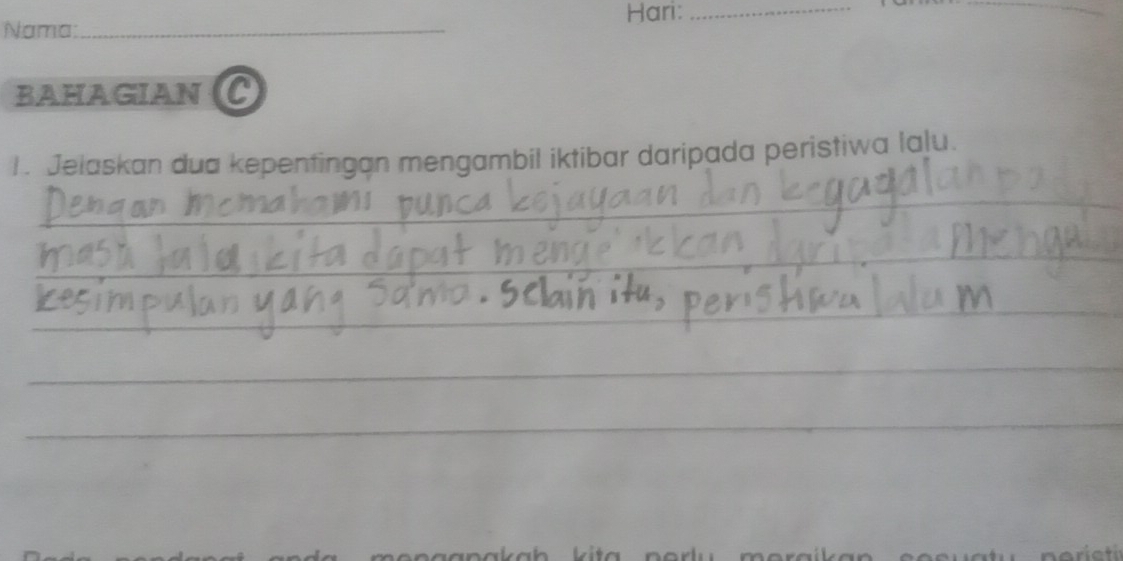 Nama:
Hari:
BAHAGIAN C
1. Jelaskan dua kepentingan mengambil iktibar daripada peristiwa lalu.
Dengan memahami punca kejayaan dan kegagalan pada
masa lalu, kita dapat mengelakkan daripada mengul
kesimpulan yang sama. selain itu, peristiwa lalu m
Pada pendapat anda mengapakah kita perlu meraikan sesuatu peristi